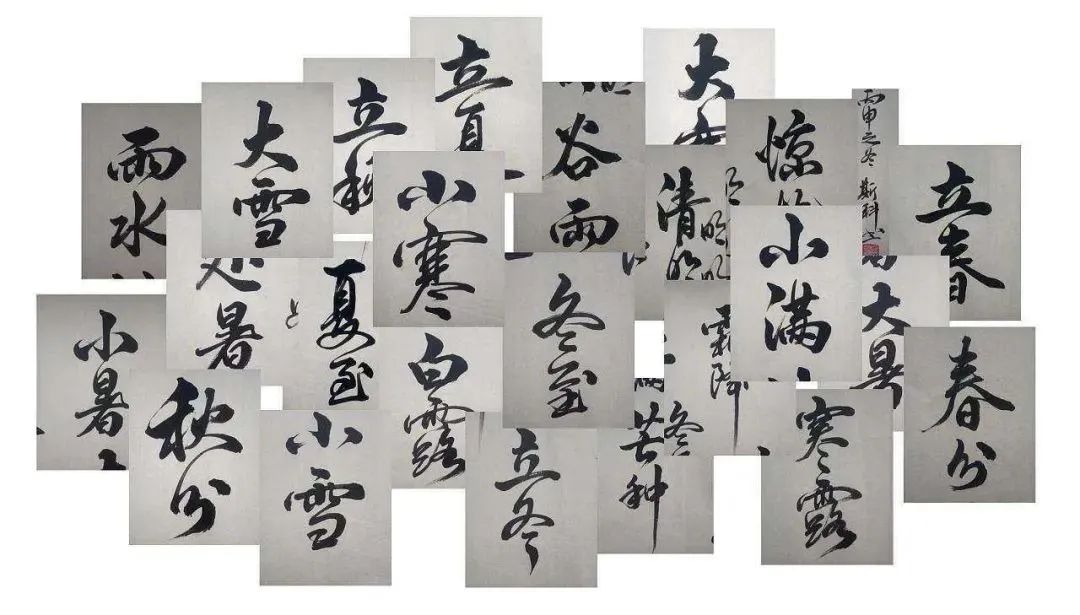 立夏
大
立秋
雨水
大雪
谷雨
惊
丙申之冬 斯科书
清明
立春
小寒
小满
处暑
夏至
冬至
大暑
小暑
白露
霜降
春分
秋分
小雪
立冬
芒种
冬
寒露